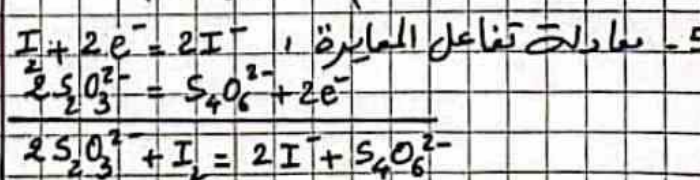 5- معادلة تفاعل المعايرة ، I₂ + 2e⁻ = 2I⁻
2S₂O₃²⁻ = S₄O₆²⁻ + 2e⁻
2S₂O₃²⁻ + I₂ = 2I⁻ + S₄O₆²⁻